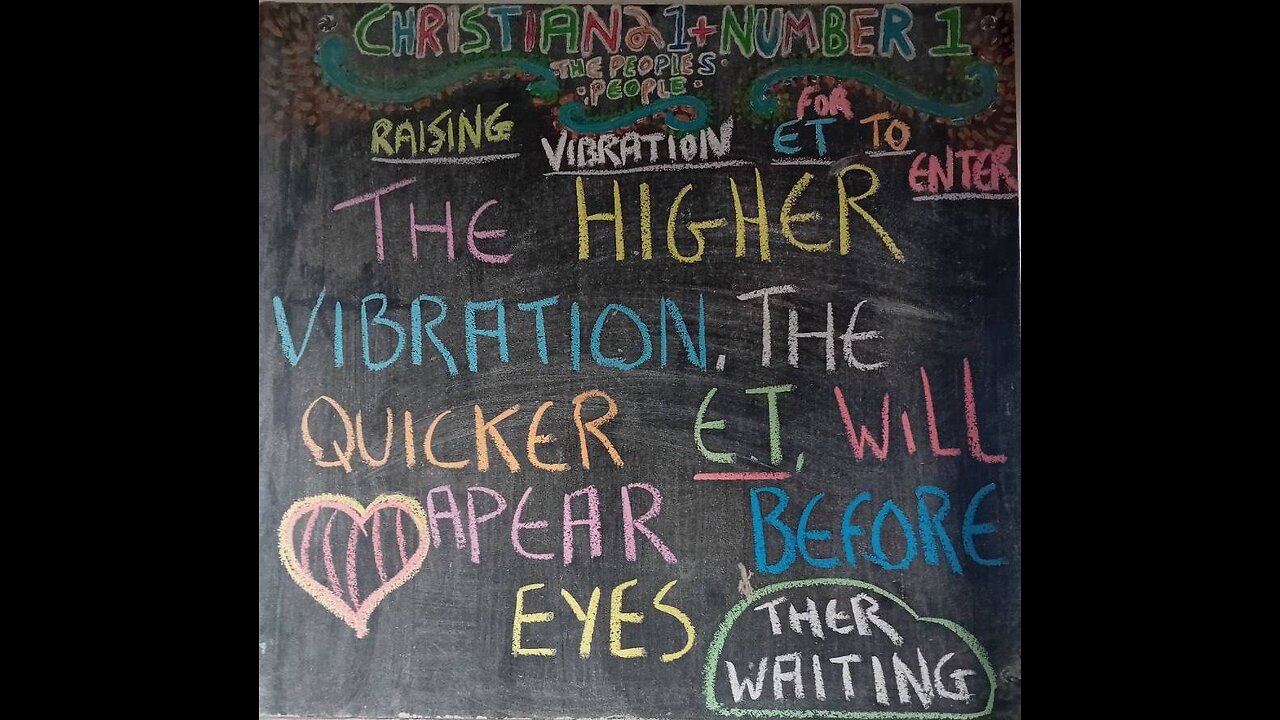 CHRISTIAN21+NUMBER 1
THE PEOPLES
PEOPLE
RAISING VIBRATION FOR ET TO ENTER
THE HIGHER
VIBRATION, THE
QUICKER ET, WiLL
APEAR BEFORE
EYES
THER
WAITING